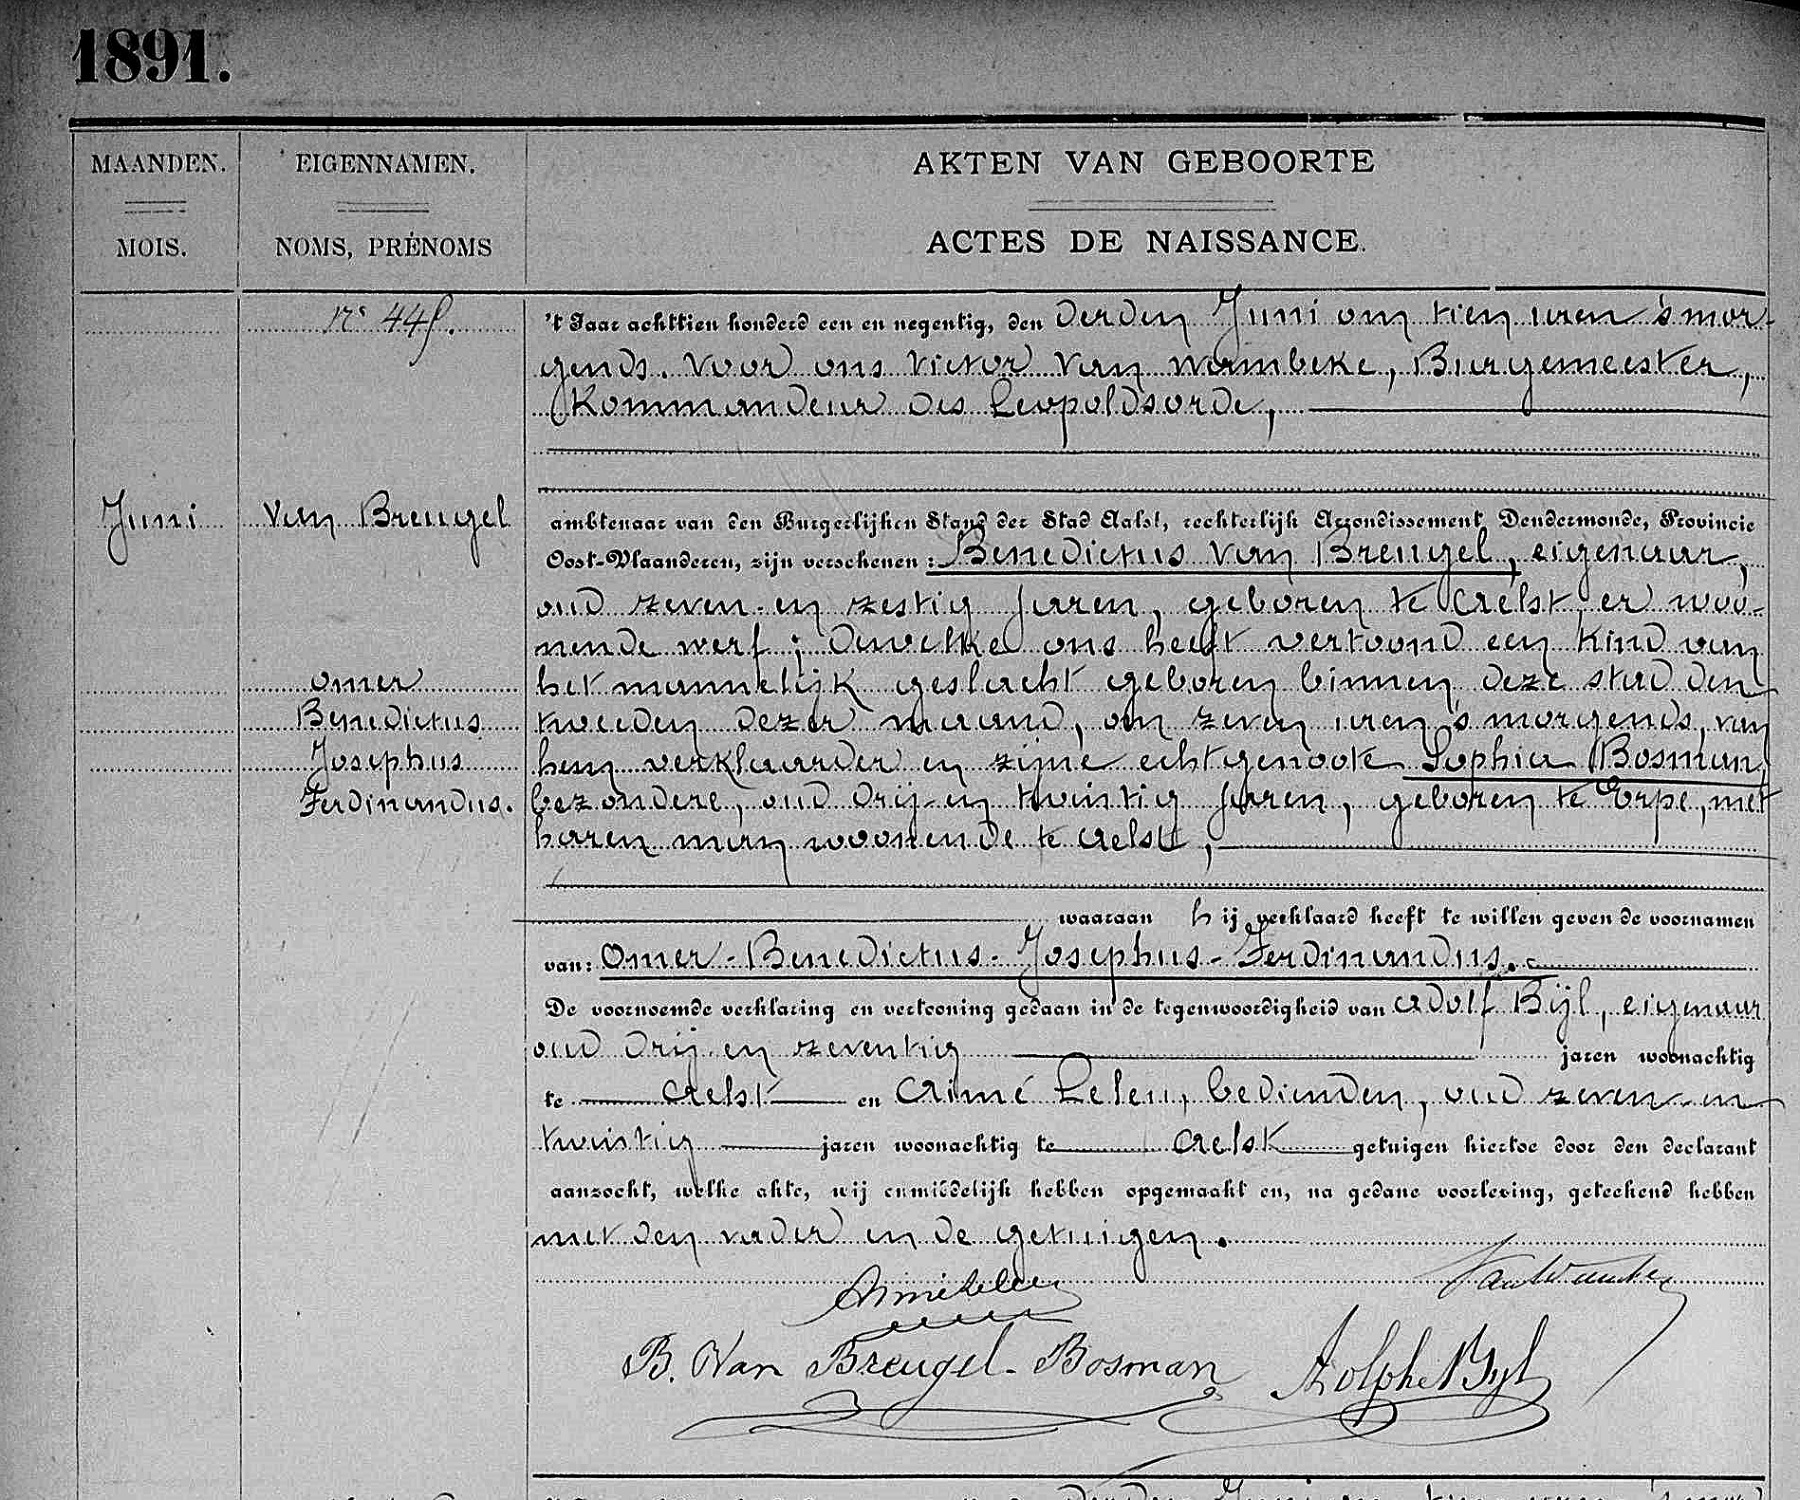 1891.
MAANDEN.
MOIS.
EIGENNAMEN.
NOMS, PRÉNOMS
AKTEN VAN GEBOORTE
ACTES DE NAISSANCE.
Juni
Van Breugel
Omer
Benedictus
Josephus
Ferdinandus.
't Jaar achttien honderd een en negentig, den derden Juni om tien uren 's mor-
gends. Voor ons Victor Van Wambeke, Burgemeester,
Kommandeur des Leopoldsorde,
ambtenaar van den Burgerlijken Stand der Stad Aalst, rechterlijk Arrondissement Dendermonde, Provincie
Oost-Vlaanderen, zijn verschenen : Benedictus Van Breugel, eigenaar,
oud zeven-en zestig jaren, geboren te Aelst er woo-
nende werf ; Dewelke ons heeft vertoond een kind van
het mannelijk geslacht geboren binnen deze stad den
tweeden dezer maand, om zeven uren 's morgends, van
hem verklaarder en zijne echtgenoote Sophia Bosman,
bezondere, oud drij-en twintig jaren, geboren te Erpe, met
haren man woonende te Aelst,
waaraan hij verklaard heeft te willen geven de voornamen
van: Omer-Benedictus-Josephus-Ferdinandus.
De voornoemde verklaring en vertooning gedaan in de tegenwoordigheid van Adolf Bijl, eigenaar
oud drij-en zeventig jaren woonachtig
te Aelst en Aimé Leleu, bedienden, oud zeven-en
twintig jaren woonachtig te Aelst getuigen hiertoe door den declarant
aanzocht, welke akte, wij onmiddelijk hebben opgemaakt en, na gedane voorlezing, geteekend hebben
met den vader en de getuigen.
Aimé Leleu
VanWambeke
B. Van Breugel-Bosman
Adolphe Byl